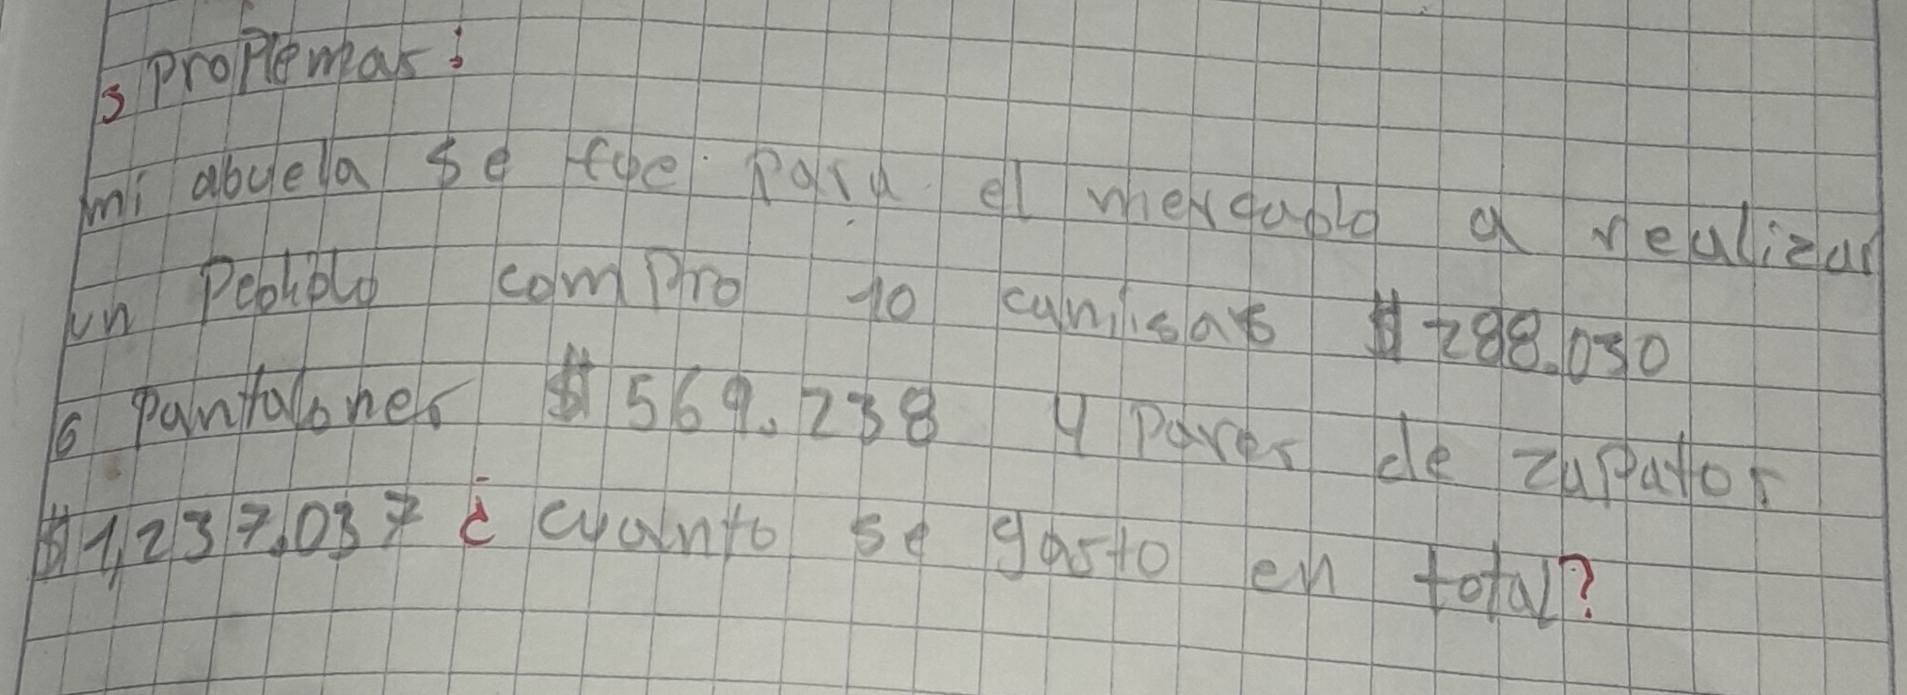 5 Proplemas:
mi abuela se fue para el mercado a realizar
un Pedido compro 10 camisas $ 288.030
6 pantalones $ 569.238 4 Pares de zapatos
$ 1,237.037 ¿ cuanto se gasto en total?